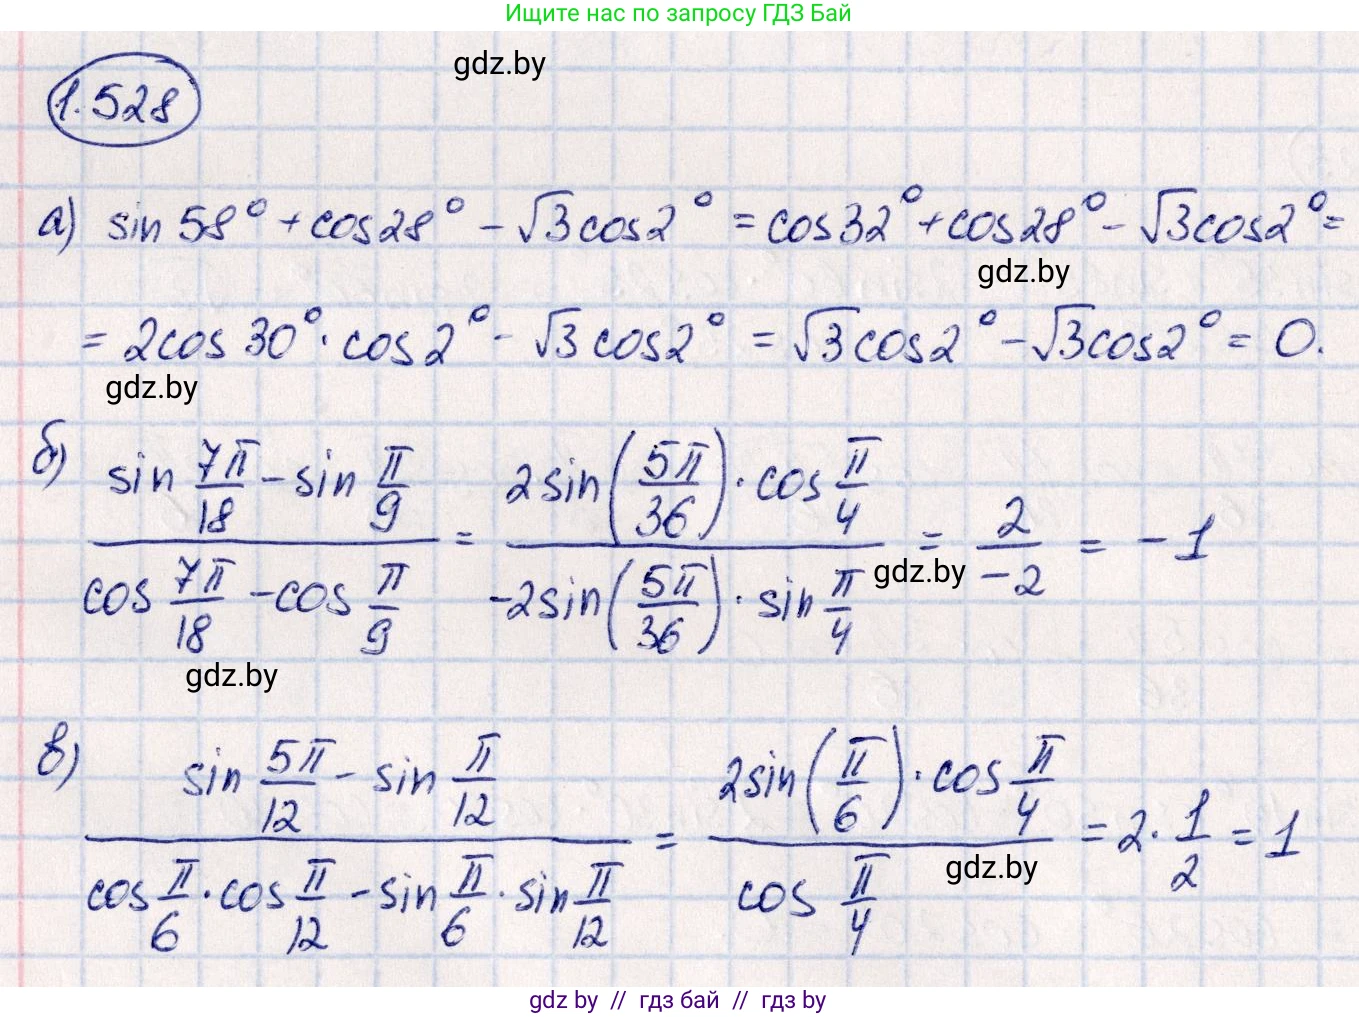 Ищите нас по запросу ГДЗ Бай
gdz.by
1.528
а) sin 58° + cos 28° - √3 cos 2° = cos 32° + cos 28° - √3 cos 2° =
gdz.by
= 2cos 30° · cos 2° - √3 cos 2° = √3 cos 2° - √3 cos 2° = 0.
gdz.by
б) (sin 7π/18 - sin π/9) / (cos 7π/18 - cos π/9) = (2sin(5π/36) · cos π/4) / (-2sin(5π/36) · sin π/4) = 2/-2 = -1
gdz.by
gdz.by
в) (sin 5π/12 - sin π/12) / (cos π/6 · cos π/12 - sin π/6 · sin π/12) = (2sin(π/6) · cos π/4) / (cos π/4) = 2 · 1/2 = 1
gdz.by
gdz by // гдз бай // гдз by